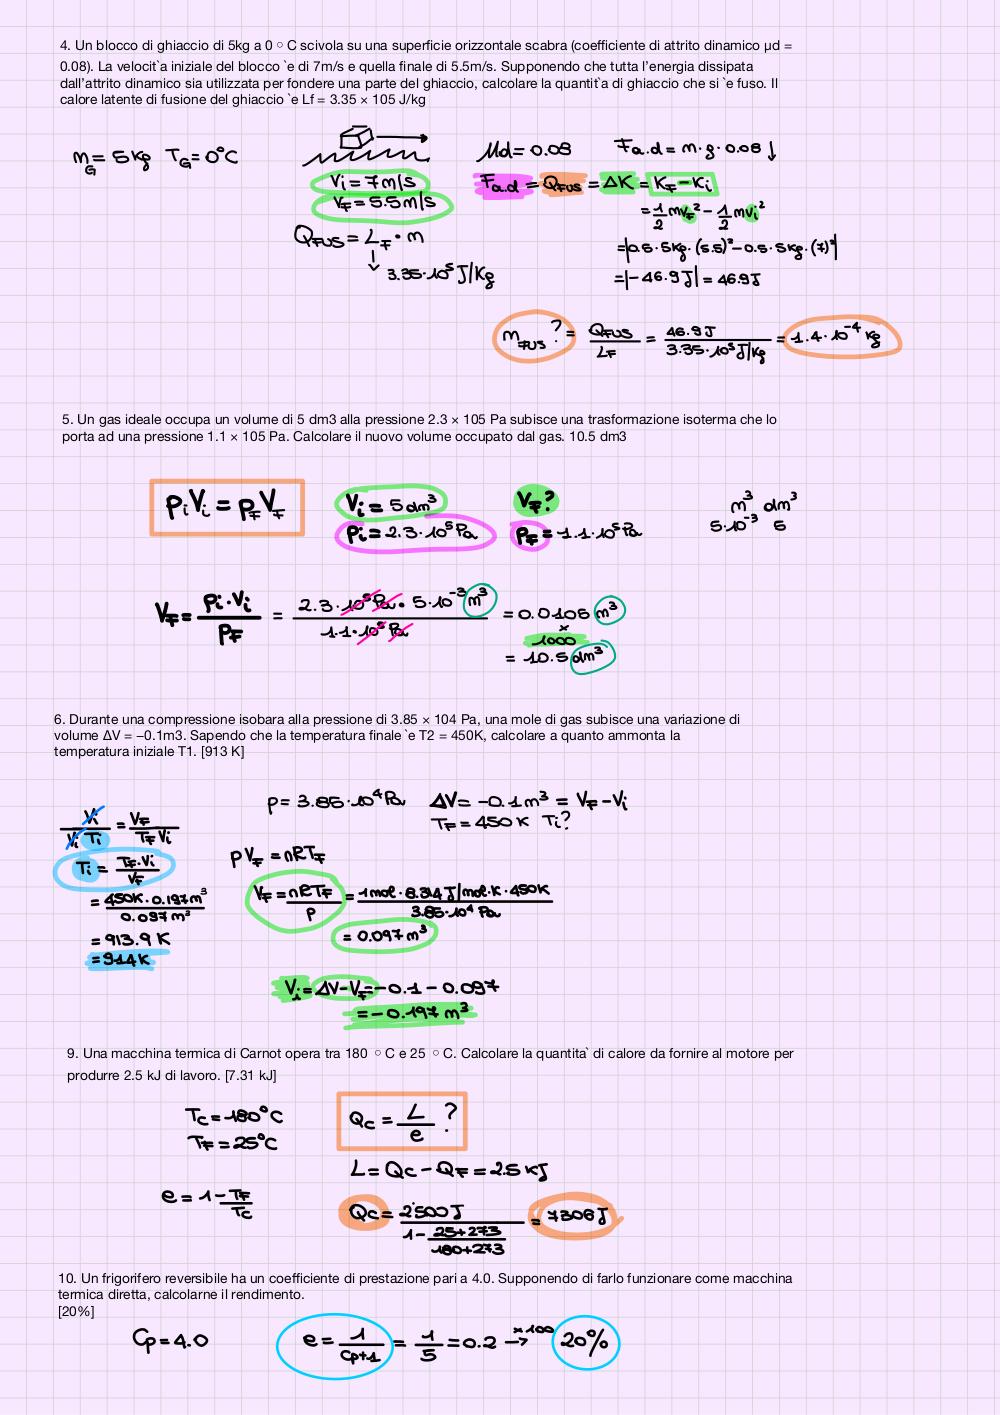 4. Un blocco di ghiaccio di 5kg a 0 ◦ C scivola su una superficie orizzontale scabra (coefficiente di attrito dinamico μd =
0.08). La velocit`a iniziale del blocco `e di 7m/s e quella finale di 5.5m/s. Supponendo che tutta l'energia dissipata
dall'attrito dinamico sia utilizzata per fondere una parte del ghiaccio, calcolare la quantit`a di ghiaccio che si `e fuso. Il
calore latente di fusione del ghiaccio `e Lf = 3.35 × 105 J/kg
m_G = 5kg T_G = 0°C
Vi = 7m/s
V_F = 5.5m/s
Q_FUS = L_F · m
↓
3.35·10⁵ J/Kg
Md = 0.08 F_a.d = m·g·0.08 ↓
F_a.d = Q_FUS = ΔK = K_F − K_i
= 1/2 mv_F² − 1/2 mv_i²
= |0.5·5kg·(5.5)² − 0.5·5kg·(7)²|
= |−46.9J| = 46.9J
m_FUS? = Q_FUS/L_F = 46.9J/3.35·10⁵J/kg = 1.4·10⁻⁴ kg
5. Un gas ideale occupa un volume di 5 dm3 alla pressione 2.3 × 105 Pa subisce una trasformazione isoterma che lo
porta ad una pressione 1.1 × 105 Pa. Calcolare il nuovo volume occupato dal gas. 10.5 dm3
p_i V_i = p_F V_F
V_i = 5 dm³ V_F?
P_i = 2.3·10⁵ Pa P_F = 1.1·10⁵ Pa
m³ dm³
5·10⁻³ 5
V_F = p_i·V_i/p_F = 2.3·10⁵Pa · 5·10⁻³ m³/1.1·10⁵ Pa = 0.0105 m³
×
1000
= 10.5 dm³
6. Durante una compressione isobara alla pressione di 3.85 × 104 Pa, una mole di gas subisce una variazione di
volume ΔV = −0.1m3. Sapendo che la temperatura finale `e T2 = 450K, calcolare a quanto ammonta la
temperatura iniziale T1. [913 K]
p = 3.85·10⁴ Pa ΔV = −0.1 m³ = V_F − V_i
T_F = 450 K T_i?
V_i/V_i T_i = V_F/T_F V_i
T_i = T_F·V_i/V_F
= 450K·0.197m³/0.097m³
= 913.9 K
= 914K
p V_F = nRT_F
V_F = nRT_F/p = 1mol·8.314 J/mol·K·450K/3.85·10⁴ Pa
= 0.097 m³
V_i = ΔV − V_F = −0.1 − 0.097
= −0.197 m³
9. Una macchina termica di Carnot opera tra 180 ◦ C e 25 ◦ C. Calcolare la quantita` di calore da fornire al motore per
produrre 2.5 kJ di lavoro. [7.31 kJ]
T_C = 180°C
T_F = 25°C
e = 1 − T_F/T_C
Q_C = L/e ?
L = Q_C − Q_F = 2.5 KJ
Q_C = 2500J/1 − 25+273/180+273 = 7306J
10. Un frigorifero reversibile ha un coefficiente di prestazione pari a 4.0. Supponendo di farlo funzionare come macchina
termica diretta, calcolarne il rendimento.
[20%]
Cp = 4.0
e = 1/Cp+1 = 1/5 = 0.2 ×100→ 20%